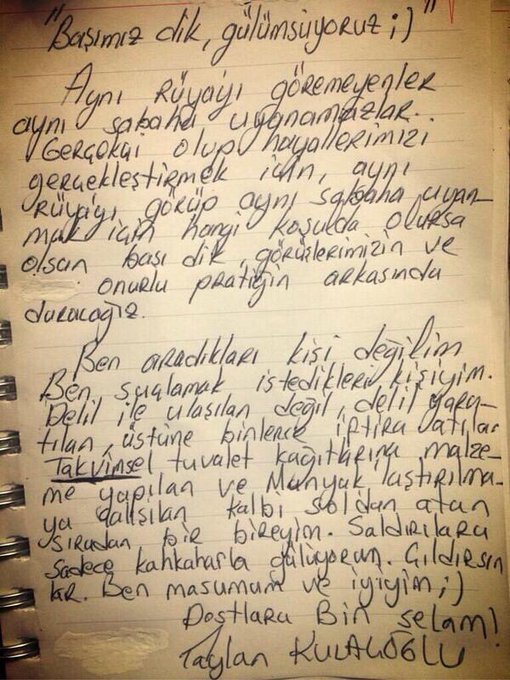 "Başımız dik, gülümsüyoruz ;)"
Aynı rüyayı göremeyenler
aynı sabaha uyanamazlar..
Gerçekçi olup hayallerimizi
gerçekleştirmek için, aynı
rüyayı görüp aynı sabaha uyan-
mak için hangi koşulda olursa
olsun başı dik, görüşlerimizin ve
onurlu pratiğin arkasında
duracağız.
Ben aradıkları kişi değilim
Ben suçlamak istedikleri kişiyim.
Delil ile ulaşılan değil, delil yara-
tılan, üstüne binlerce iftira atılan
Takvimsel tuvalet kağıtlarına malze-
me yapılan ve Manyaklaştırılma-
ya çalışılan kalbi soldan atan
sıradan bir bireyim. Saldırılara
sadece kahkaharla gülüyorum. Çıldırsın
lar. Ben masumum ve iyiyim ;)
Dostlara Bin selam!
Taylan KULAÇOĞLU